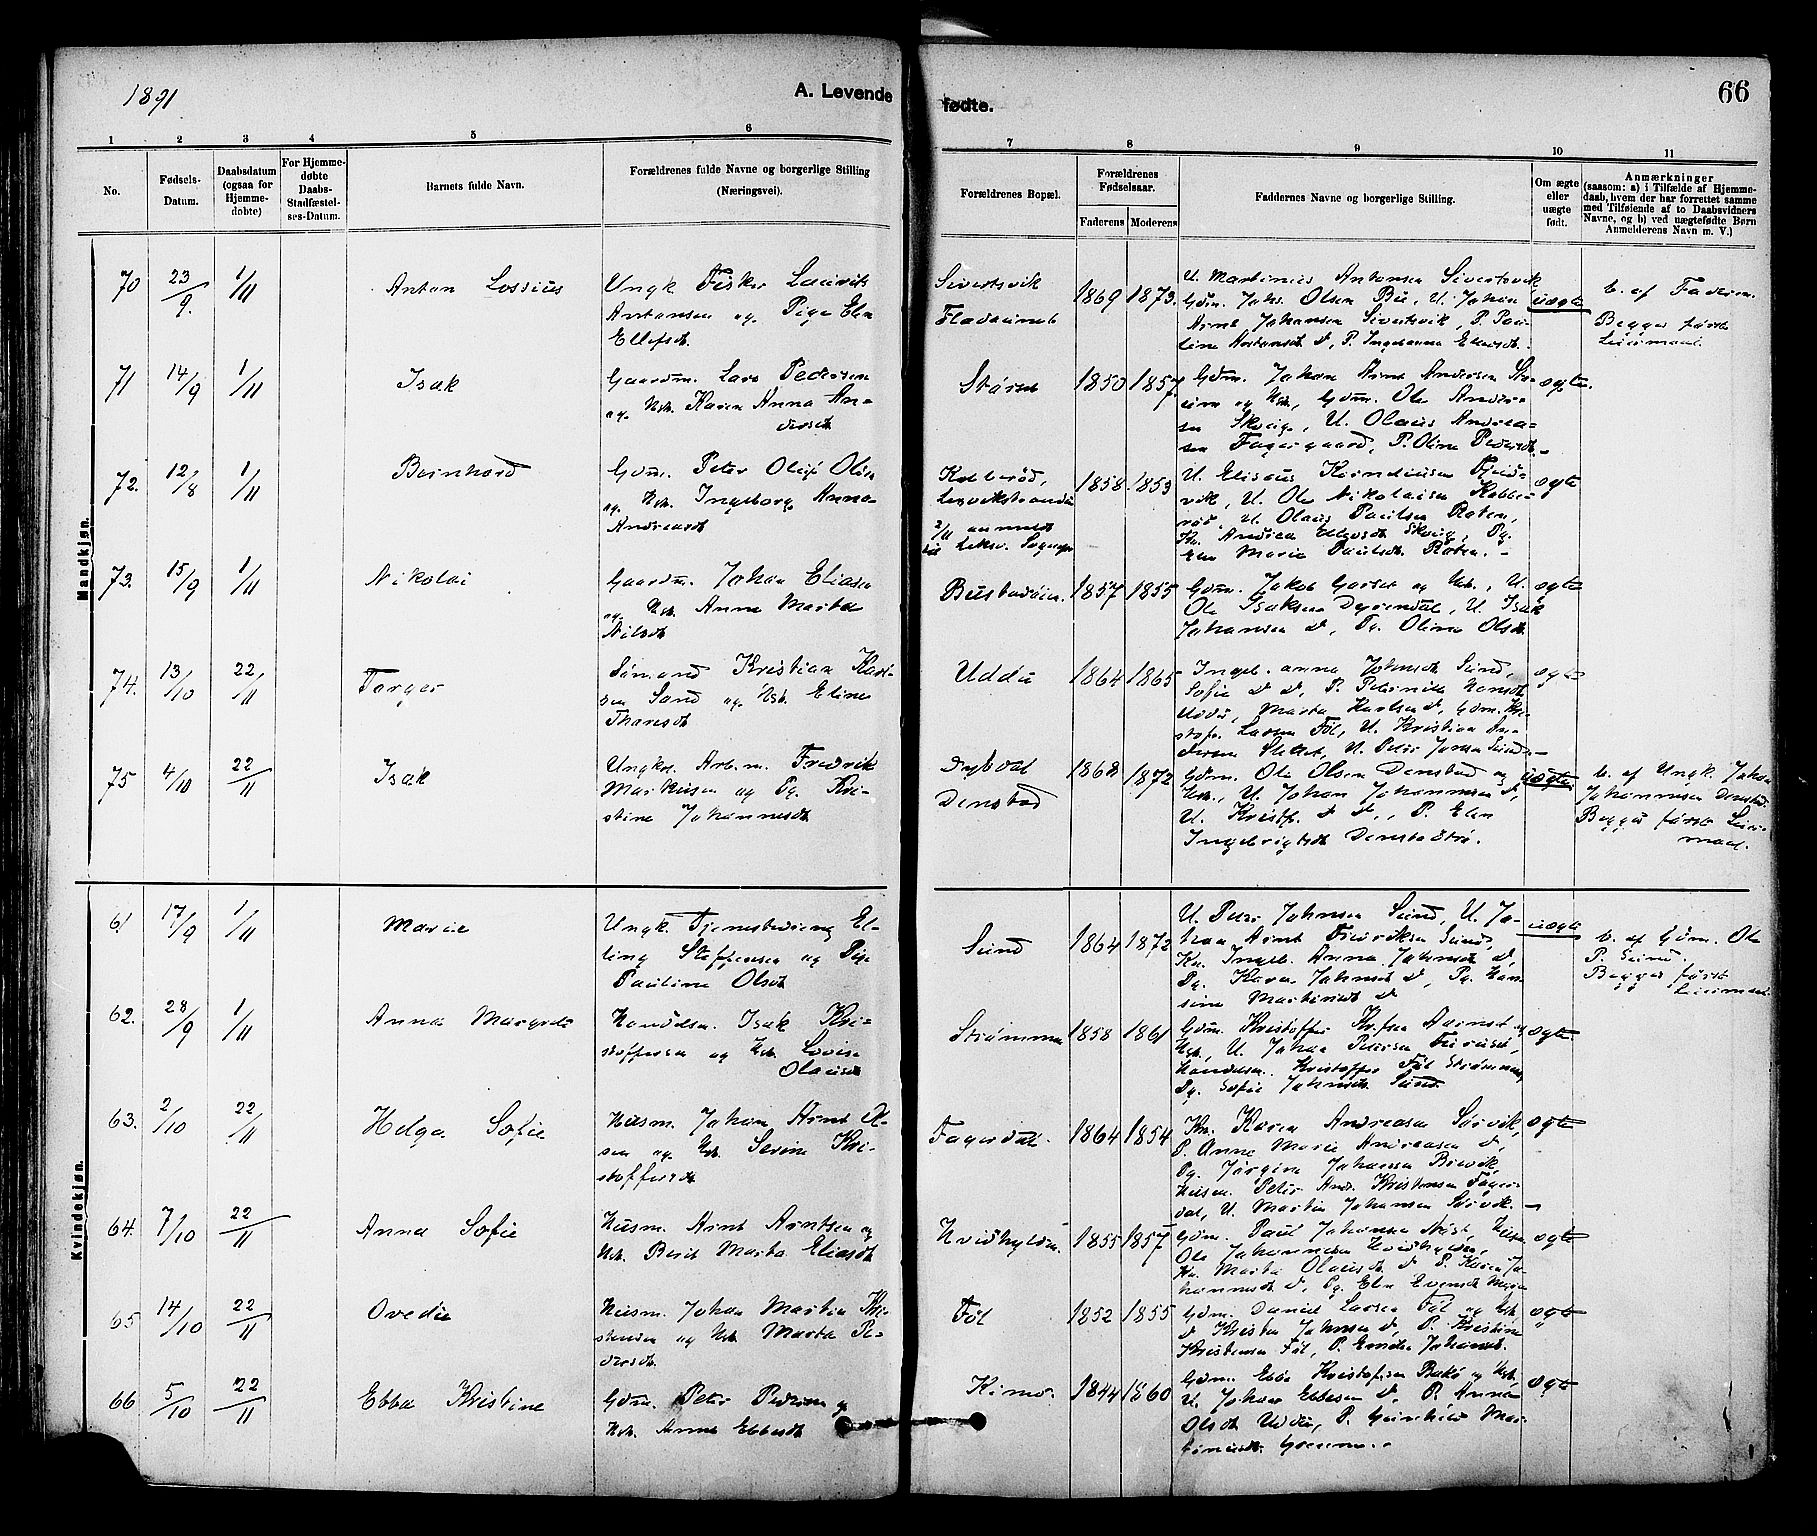 1891
A. Levende fødte.
66
1 2 3 4 5 6 7 8 9 10 11
No.
Fødsels-Datum.
Daabsdatum (ogsaa for Hjemme-døbte)
For Hjemme-døbte Daabs-Stadfæstel-ses-Datum.
Barnets fulde Navn.
Forældrenes fulde Navne og borgerlige Stilling (Næringsvei).
Forældrenes Bopæl.
Forældrenes Fødselsaar.
Faderens Moderens
Faddernes Navne og borgerlige Stilling.
Om ægte eller uægte født.
Anmærkninger
(saasom: a) i Tilfælde af Hjemme-
daab, hvem der har forrettet samme
med Tilføiende af to Daabsvidners
Navne, og b) ved uægtefødte Børn
Anmelderens Navn m. V.)
Mandkjøn.
70 23/9. 1/11 Anton Lossius
Ungk. Fisker
Antonsen og Pige Elen
Ellefsdt.
Sivertsvik
1869 1873.
U. Martinius Antonsen Sivertsvik,
Gdm. Johs. Olsen Bu, U. Johan
Arnt Johansen Sivertsvik, P.
uægte
b. af Faderen.
Begges første
Leiermaal.
71 14/9 1/11 Isak
Gaardm. Lars Pedersen
og Hst. Karen Anna An-
dersdt.
1850 1857.
Gdm. Johan Arnt Andersen
og Hst., Gdm. Ole Ander-
sen U. Olaus Andrea-
sen Fagergaard, P. Oline Pedersdt.
ægte.
72. 12/8 1/11 Bernhard
Gdm. Peter Oluf Olsen
og Hst. Ingeborg Anna
Andreasdt.
2/11 anmeldt
til Leksv. Sogepr
1858. 1853
U. Eliseus Korneliusen
vik, U. Ole Nikolaisen Kobbe-
rød, U. Olaus Paulsen Roten,
Marie Paulsdt. Roten.
ægte
73. 15/9 1/11 Nikolai
Gaardm. Johan Eliasen
og Hst. Anne Marta
Nilsdt
1857 1855
Gdm. Jakob og Hst., U.
Ole Isaksen Dyrendal, U. Isak
Johansen d, Pg. Oline Olsdt.
ægte
74. 13/10 22/11 Torger
Sømand Kristian Karl-
sen Sund og Hst. Eline
Uddu
1864 1865
Ingeb. anna Johnsdt Sund,
Sofie d d, P. Peternille Hansdt
Uddu, Marta Karlsen d, Gdm. Kri-
stofer Larsen Føl, U. Kristian An-
dersen U. Peter Johnsen Sund.
ægte
75 4/10 22/11 Isak
Ungkr. Arb.m. Fredrik
Markusen og Pg. Kri-
stine Johannesdt
Dybdal
Denstad
1868 1872
Gdm. Ole Olsen Denstad og
Hst., U. Johan Johannesen d,
U. Kristf. d d., P. Elen
Ingebrigtsdt Denstadtrø.
uægte
b. af Ungk. Johan
Johannesen Denstad.
Begges første Leier-
maal.
Kvindekjøn.
61 17/9 1/11 Marie
Ungk. Tjenestedreng El-
ling Steffensen og Pige
Pauline Olsdt
Sund
1864 1872
U. Peter Johnsen Sund, U. Jo-
han Arnt Fredriksen Sund,
Kv. Ingeb. Anna Johnsdt d,
Pg. Karen Johnsdt d, Pg. Han-
sine Martinsdt d
uægte
b. af Gdm. Ole
P. Sund.
Begges første
Leiermaal.
62. 28/9 1/11 Anna Margrete
Handelsm. Isak Kri-
stoffersen og Hst. Lovise
Olausdt
Strømmen
1858 1861
Gdm. Kristoffer
Hst., U. Johan Petersen
Handelsm. Kristoffer Føl Strømmen,
Pg. Sofie Johnsdt Sund.
ægte
63. 2/10 22/11 Helga Sofie
Husm. Johan Arnt Ol-
sen og Hst. Serine Kri-
stoffersdt
Fagerdal.
1864 1854
Kv. Karen Andreasen Sørvik,
P. Anne Marie Andreasen d,
Pg. Jørgine Johansen
Husm. Peter Andr. Kristensen Fager-
dal, U. Martin Johansen Sørvik.
ægte
64. 7/10 22/11 Anna Sofie
Husm. Arnt Arntsen og
Hst. Berit Marta Eliasdt
Hvidhylden.
1855 1857
Gdm. Paul Johansen Husm.
Ole Johannesen Hvidhylden,
Kv. Marta Olausdt d P. Karen Jo-
hannesdt d, Pg. Elen Evensdt
ægte
65 14/10 22/11 Ovedie
Husm. Johan Martin Kri-
stensen og Hst. Marta Pe-
dersdt.
Føl
1852 1855
Gdm. Daniel Larsen Føl og Hst.
d Kristen Johnsen d, P. Kristine
Kristensen Føl, P. Johansdt.
ægte
66 5/10 22/11 Ebba Kristine
Gdm. Peter Pedersen og
Hst. Anne Ebbesdt
1844 1860
Gdm. Ebbe Kristofersen og Hst.
U. Johan Ebbesen d, P. Anna
Olsdt Uddu, P.
ægte